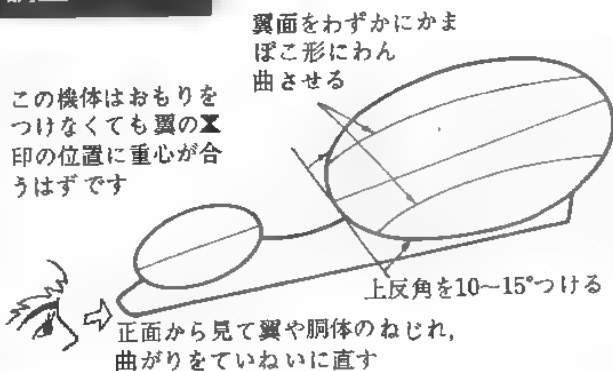 翼面をわずかにかま
ぼこ形にわん
曲させる
この機体はおもりを
つけなくても翼の⧗
印の位置に重心が合
うはずです
上反角を10〜15°つける
正面から見て翼や胴体のねじれ,
曲がりをていねいに直す